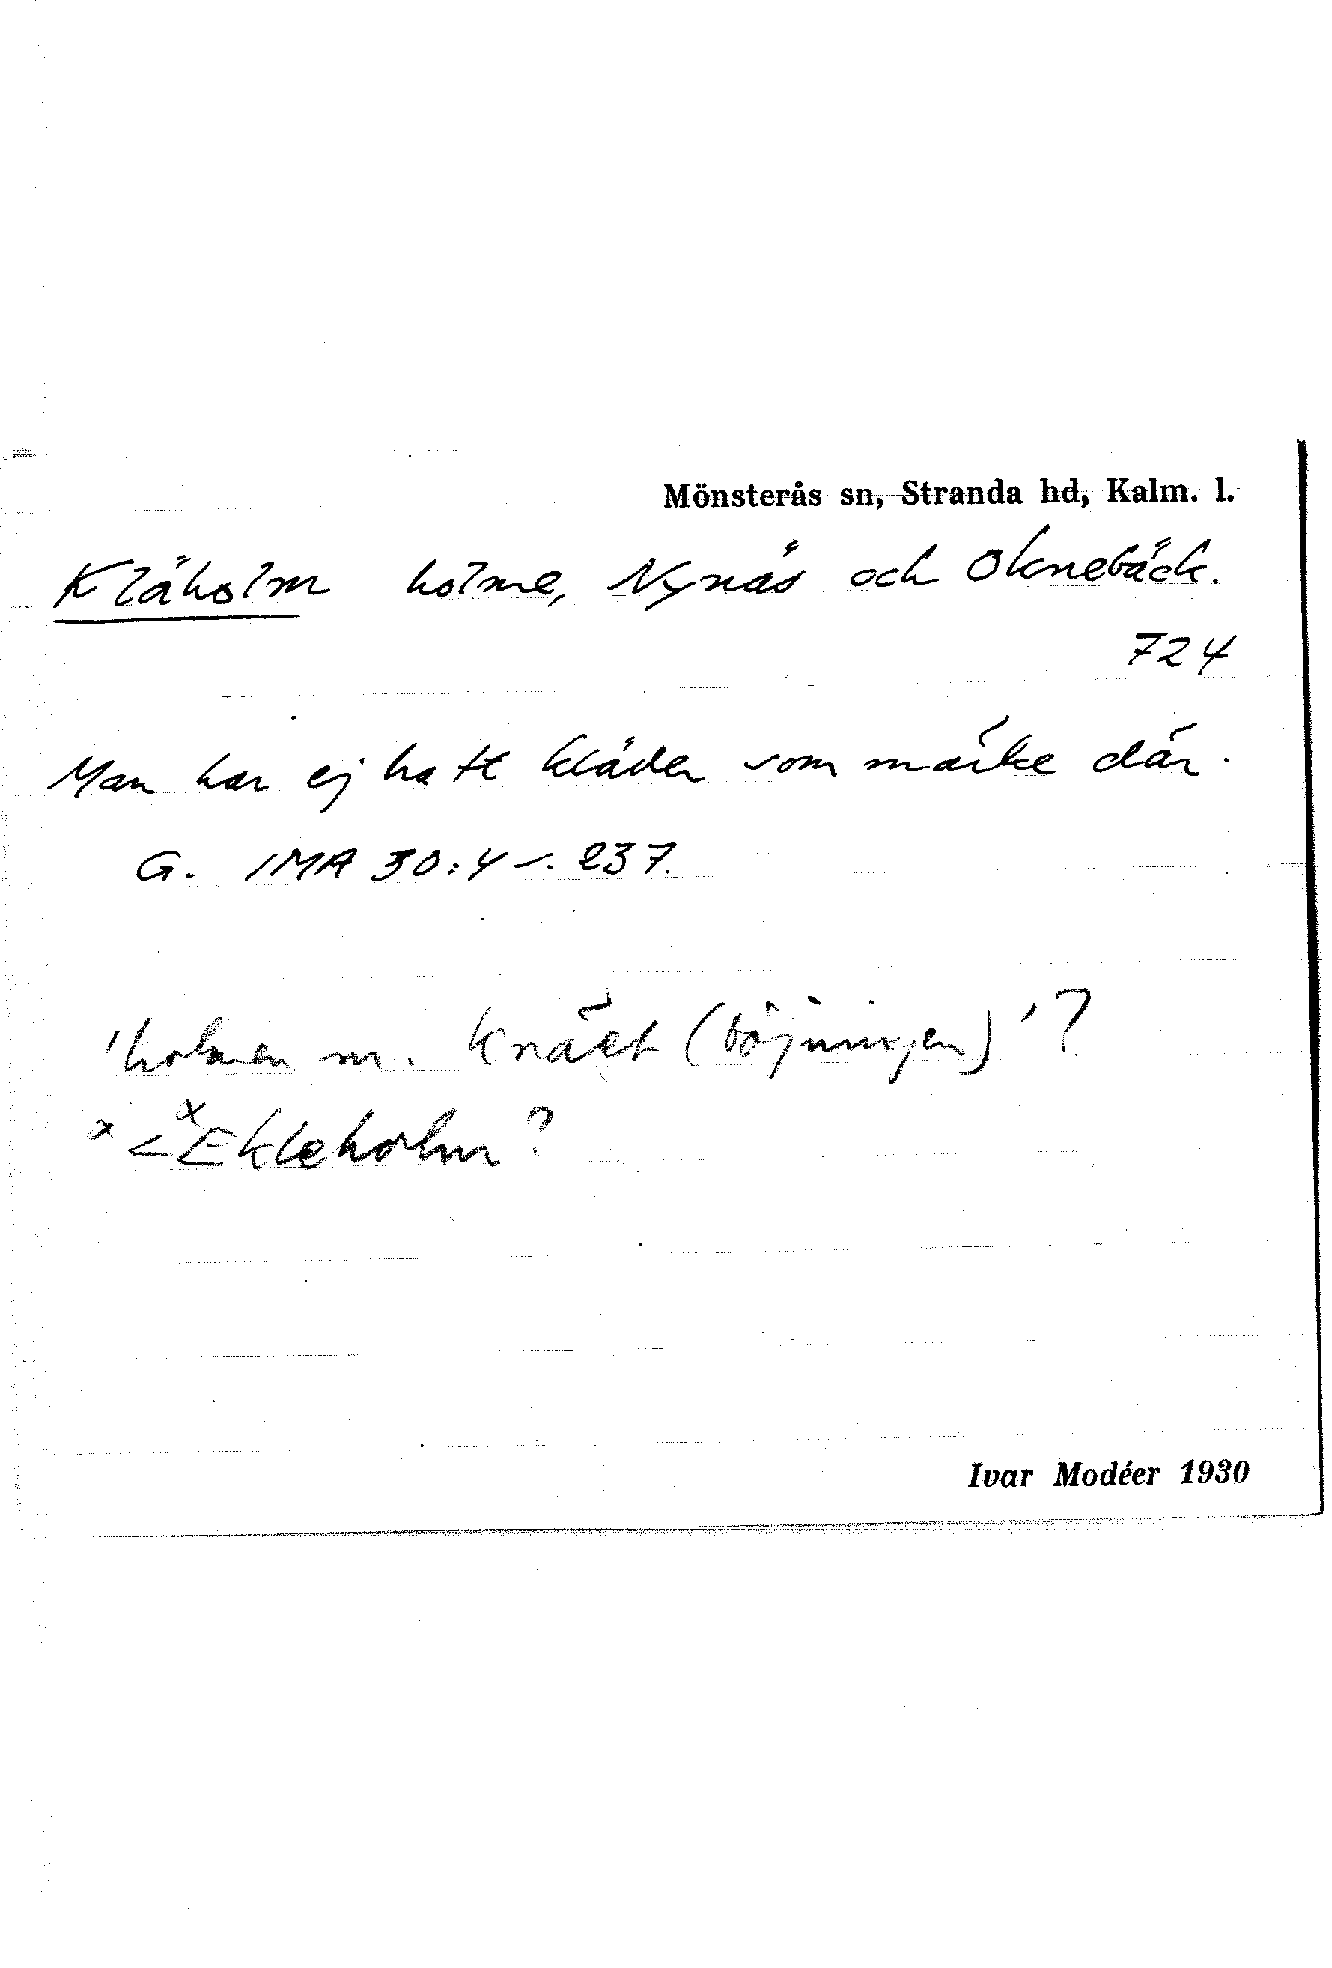 Mönsterås sn, Stranda hd, Kalm. l.
Kläholm holme, Nynäs och Oknebäck.
724
Man har ej hatt kläder som märke där.
G. IMA 30:4 s. 237.
'holmen m. knäet (böjningen)'?
x <x Ekleholm?
Ivar Modéer 1930